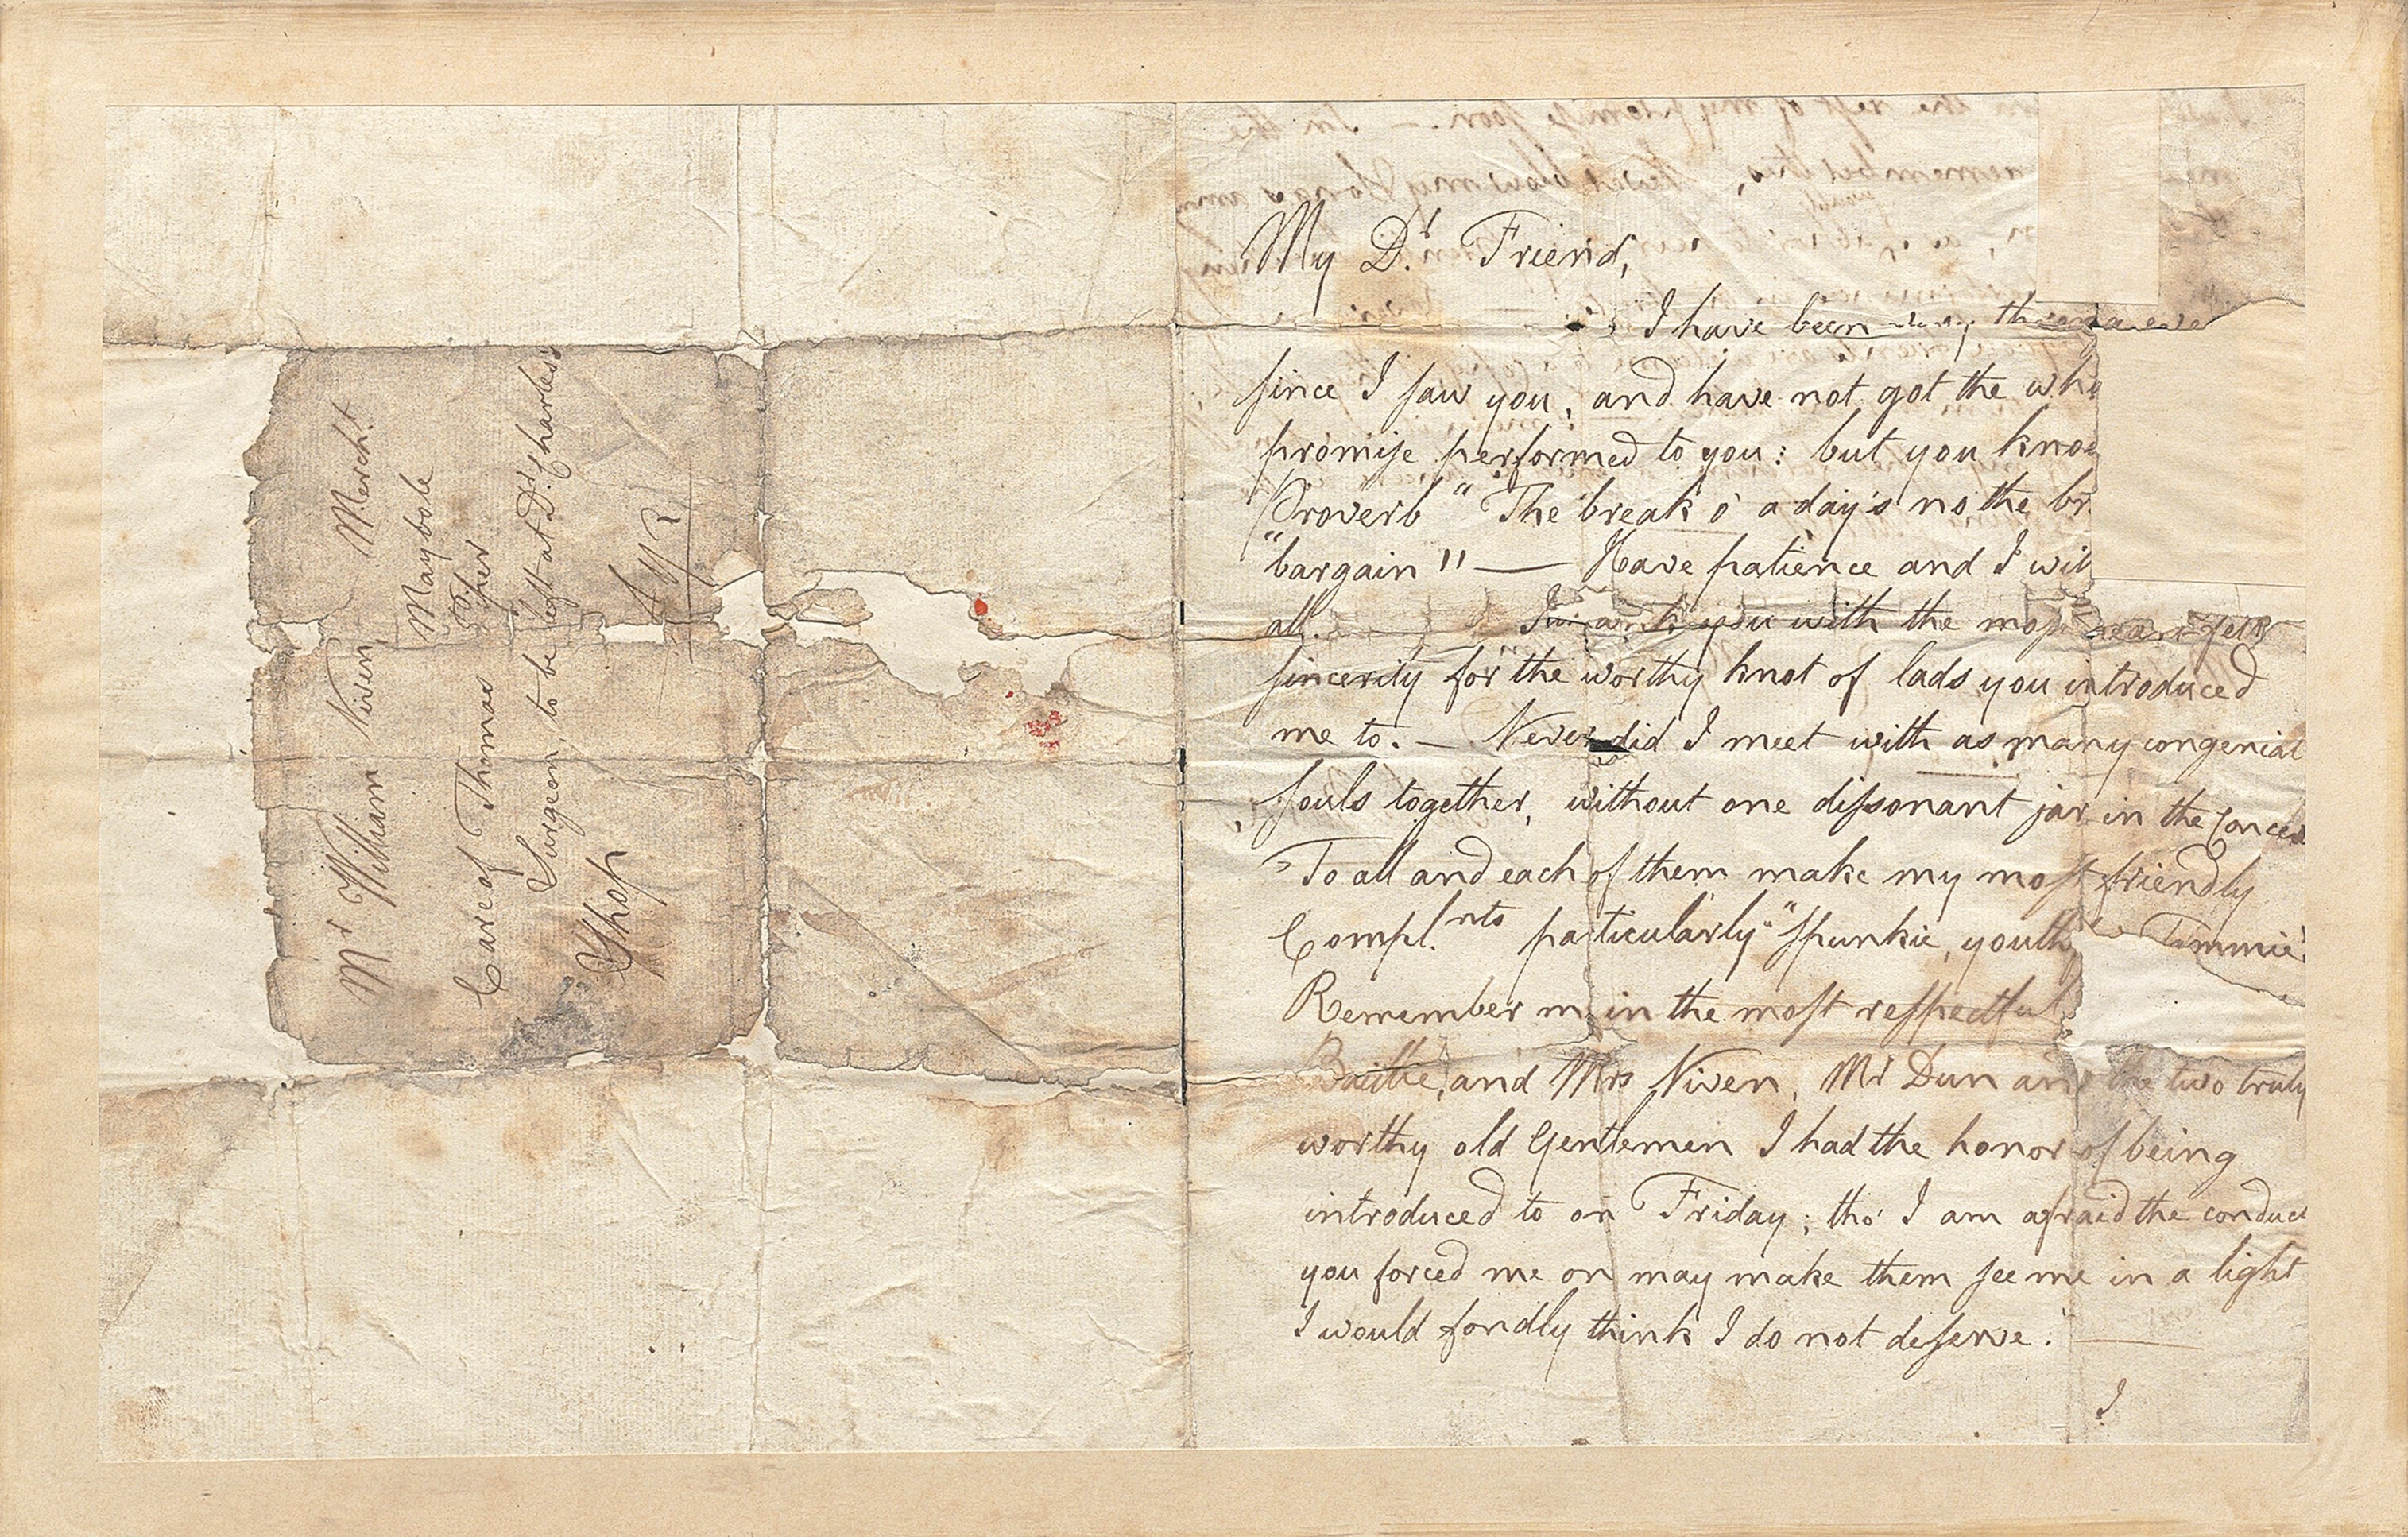 Mr William Niven, Mercht
Maybole
per
Care of Thomas
Surgeon, to be left at Dr. Charles's
Shop Ayr
My Dr. Friend,
I have been
since I saw you, and have not got the who
promise performed to you: but you know
Proverb "The break o' a day's no the br
"bargain" — Have patience and I wil
all. I you with the most heart felt
sincerity for the worthy knot of lads you introduced
me to. — Never did I meet with as many congenial
souls together, without one dissonant jar in the Concer
To all and each of them make my most friendly
Compl.nts particularly "spunkie, youth Tammie"
Remember m in the most respectful
Bailie, and Mrs Niven, Mr Dun and the two truly
worthy old Gentlemen I had the honor of being
introduced to on Friday; tho' I am afraid the conduct
you forced me on may make them see me in a light
I would fondly think I do not deserve. —
I